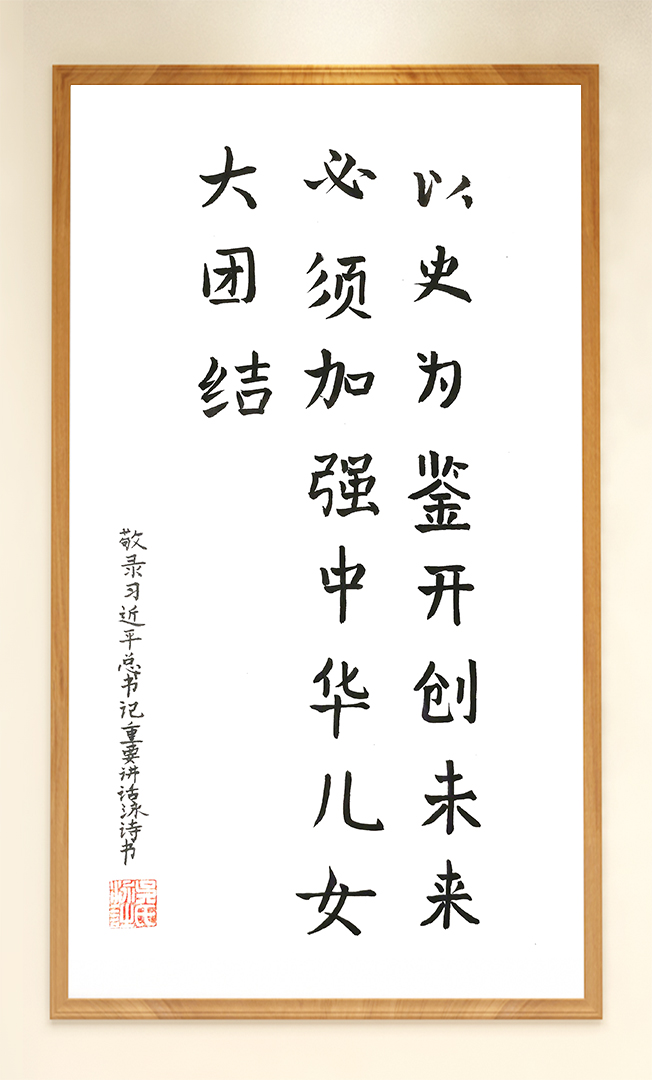 以史为鉴开创未来
必须加强中华儿女
大团结
敬录习近平总书记重要讲话泳诗书